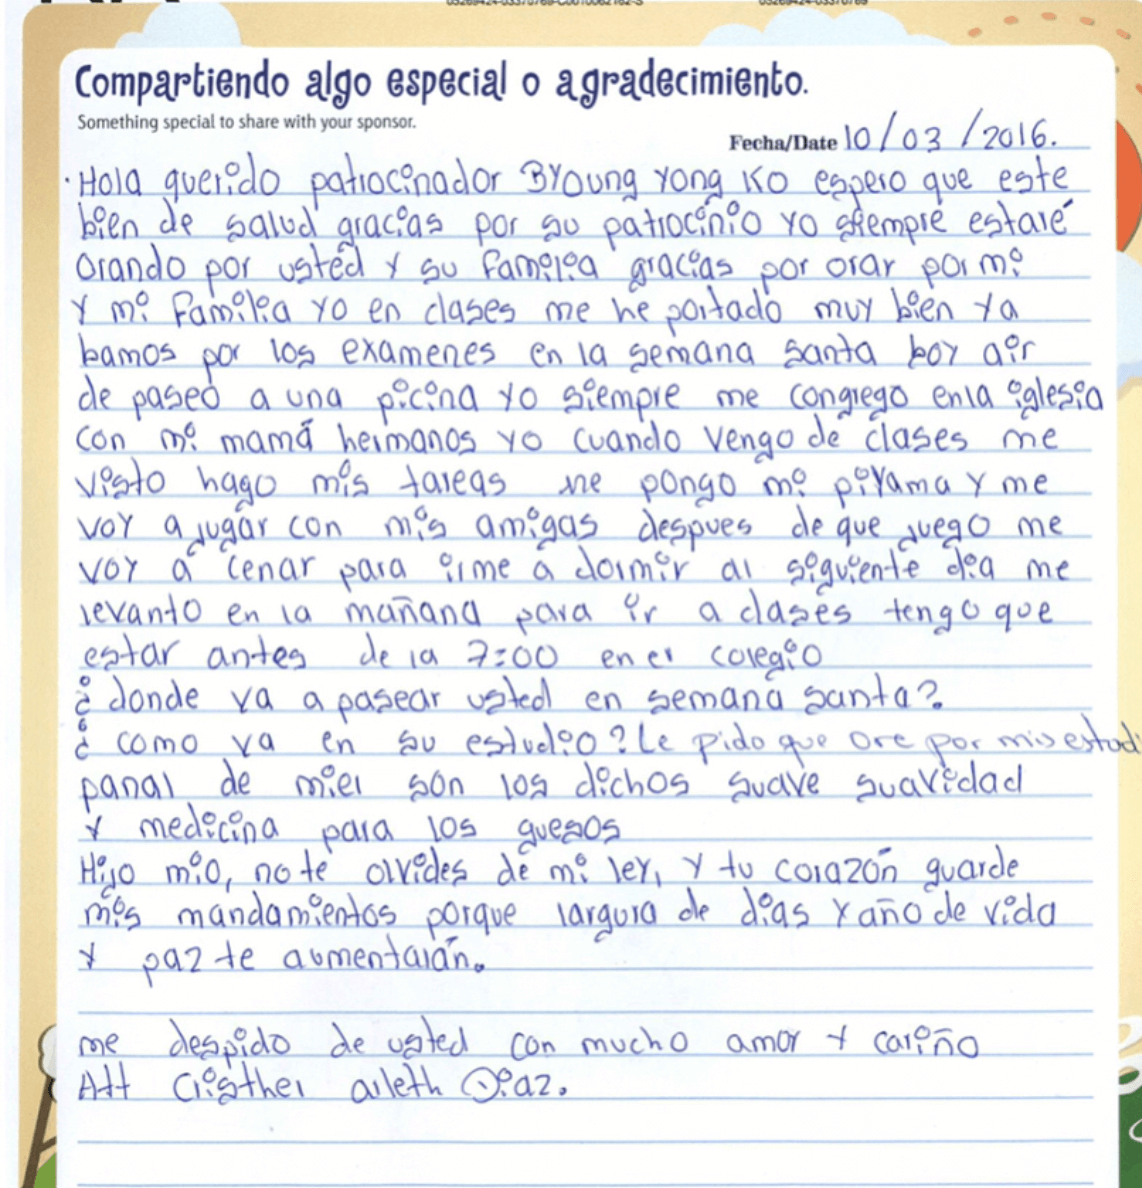 Compartiendo algo especial o agradecimiento.
Something special to share with your sponsor.
Fecha/Date 10/03/2016.
Hola querido patrocinador BYoung Yong Ko espero que este
bien de salud gracias por su patrocinio yo siempre estaré
Orando por usted y su familia gracias por orar por mi
Y mi familia yo en clases me he portado muy bien ya
bamos por los examenes en la semana santa boy air
de paseo a una picina yo siempre me congrego enla iglesia
con mi mamá hermanos yo cuando vengo de clases me
visto hago mis tareas me pongo mi piyama y me
voy a jugar con mis amigas despues de que juego me
voy a cenar para irme a dormir al siguiente dia me
levanto en la mañana para ir a clases tengo que
estar antes de la 7:00 en el colegio
¿donde va a pasear usted en semana santa?
¿como va en su estudio? Le pido que ore por mis estudi
panal de miel son los dichos suave suavidad
y medicina para los guesos
Hijo mio, no te olvides de mi ley, y tu corazón guarde
mis mandamientos porque largura de dias y año de vida
y paz te aumentarán.
me despido de usted con mucho amor y cariño
Att Cristhel arleth Diaz.